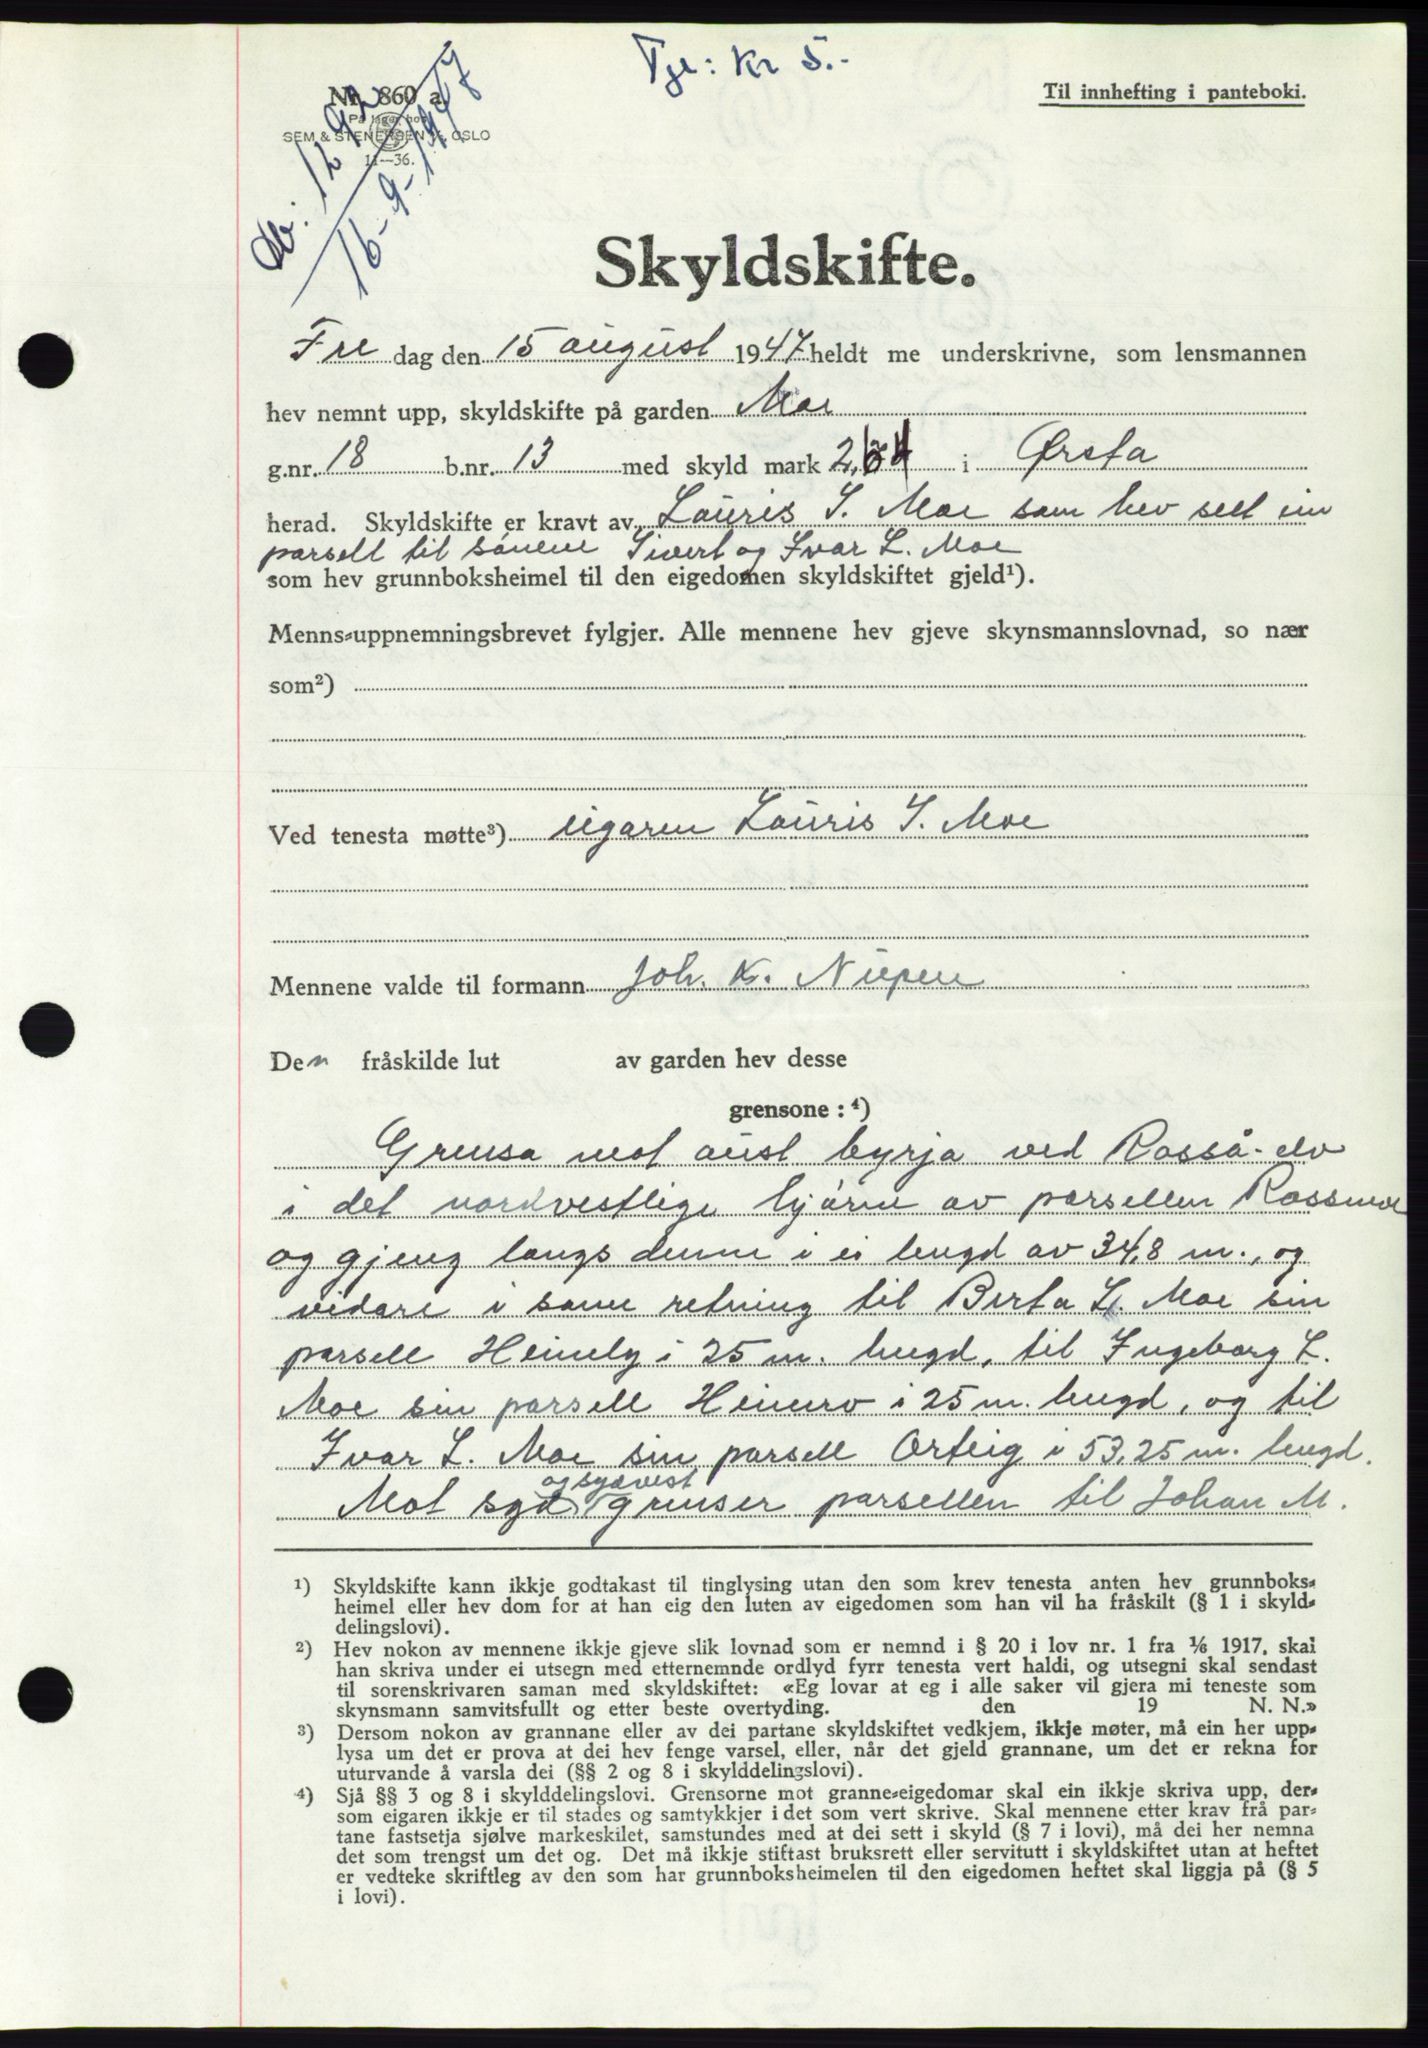 Tgl: Kr 5.-
Til innhefting i panteboki.
Nr. 860 a.
På lager hos
SEM & STENERSEN A/S, OSLO
11—36.
Db: 1292
16-9-1947
Skyldskifte.
Fre dag den 15 august 1947 heldt me underskrivne, som lensmannen
hev nemnt upp, skyldskifte på garden Moe
g.nr. 18 b.nr. 13 med skyld mark 2,64 i Ørsta
herad. Skyldskifte er kravt av Lauris S. Moe som hev selt ein
parsell til sønene Sivert og Ivar L. Moe
som hev grunnboksheimel til den eigedomen skyldskiftet gjeld¹).
Menns-uppnemningsbrevet fylgjer. Alle mennene hev gjeve skynsmannslovnad, so nær
som²)
Ved tenesta møtte³) eigaren Lauris S. Moe
Mennene valde til formann Joh. K. Nupen
Den fråskilde lut av garden hev desse
grensone: ⁴)
Grensa mot aust byrja ved Rosså-elv
i det nordvestlige hjørne av parsellen Rossmoe
og gjeng langs denne i ei lengd av 34,8 m., og
vidare i same retning til Berta L. Moe sin
parsell Heimely i 25 m. lengd, til Ingeborg L.
Moe sin parsell Heimro i 25 m. lengd, og til
Ivar L. Moe sin parsell Orteig i 53,25 m. lengd.
og sydvest
Mot syd grenser parsellen til Johan M.
¹) Skyldskifte kann ikkje godtakast til tinglysing utan den som krev tenesta anten hev grunnboks-
heimel eller hev dom for at han eig den luten av eigedomen som han vil ha fråskilt (§ 1 i skyld-
delingslovi).
²) Hev nokon av mennene ikkje gjeve slik lovnad som er nemnd i § 20 i lov nr. 1 fra ⅟₆ 1917, skal
han skriva under ei utsegn med etternemnde ordlyd fyrr tenesta vert haldi, og utsegni skal sendast
til sorenskrivaren saman med skyldskiftet: «Eg lovar at eg i alle saker vil gjera mi teneste som
skynsmann samvitsfullt og etter beste overtyding. den 19 N. N.»
³) Dersom nokon av grannane eller av dei partane skyldskiftet vedkjem, ikkje møter, må ein her upp-
lysa um det er prova at dei hev fenge varsel, eller, når det gjeld grannane, um det er rekna for
uturvande å varsla dei (§§ 2 og 8 i skylddelingslovi).
⁴) Sjå §§ 3 og 8 i skylddelingslovi. Grensorne mot granne-eigedomar skal ein ikkje skriva upp, der-
som eigaren ikkje er til stades og samtykkjer i det som vert skrive. Skal mennene etter krav frå par-
tane fastsetja sjølve markeskilet, samstundes med at dei sett i skyld (§ 7 i lovi), må dei her nemna
det som trengst um det og. Det må ikkje stiftast bruksrett eller servitutt i skyldskiftet utan at heftet
er vedteke skriftleg av den som har grunnboksheimelen til den eigedomen heftet skal liggja på (§ 5
i lovi).